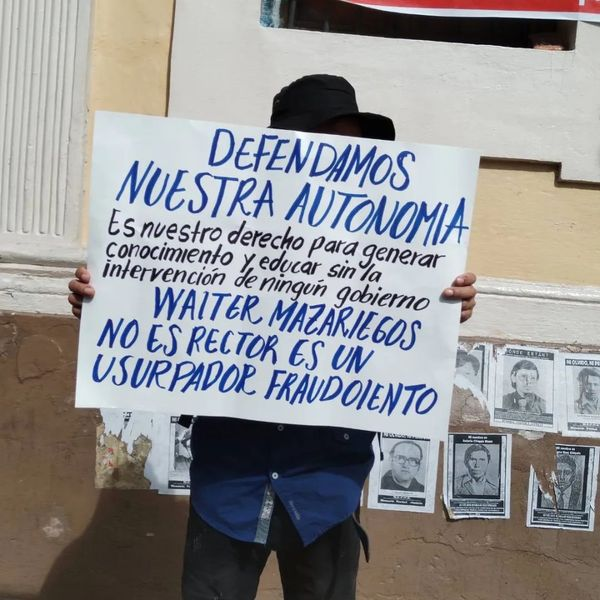 DEFENDAMOS
NUESTRA AUTONOMIA
Es nuestro derecho para generar
conocimiento y educar sin la
intervención de ningún gobierno
WALTER MAZARIEGOS
NO ES RECTOR ES UN
USURPADOR FRAUDOLENTO